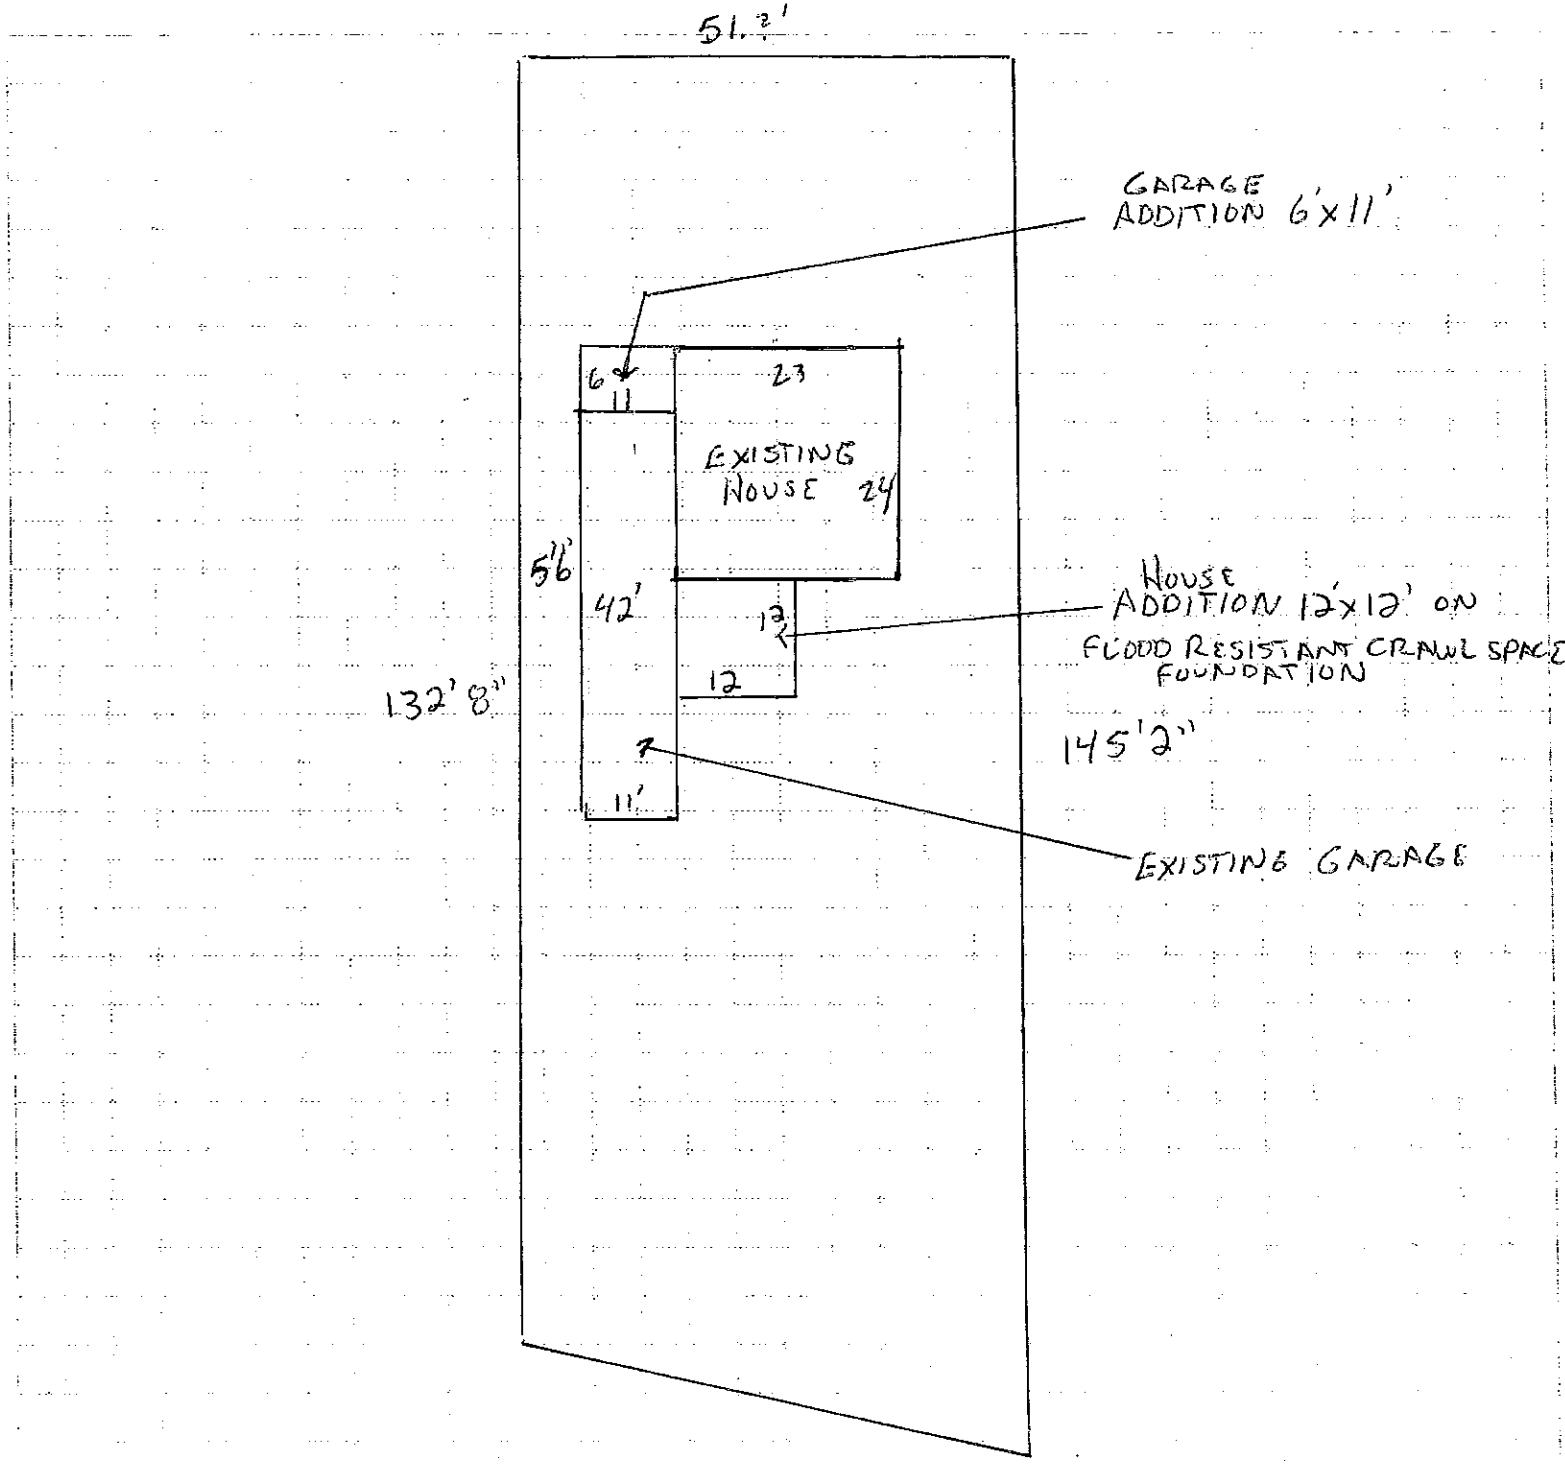 51.2'
GARAGE
ADDITION 6'x11'
6
11
23
EXISTING
HOUSE 24
42'
12
12
HOUSE
ADDITION 12'x12' ON
FLOOD RESISTANT CRAWL SPACE
FOUNDATION
132'8"
145'2"
11'
EXISTING GARAGE